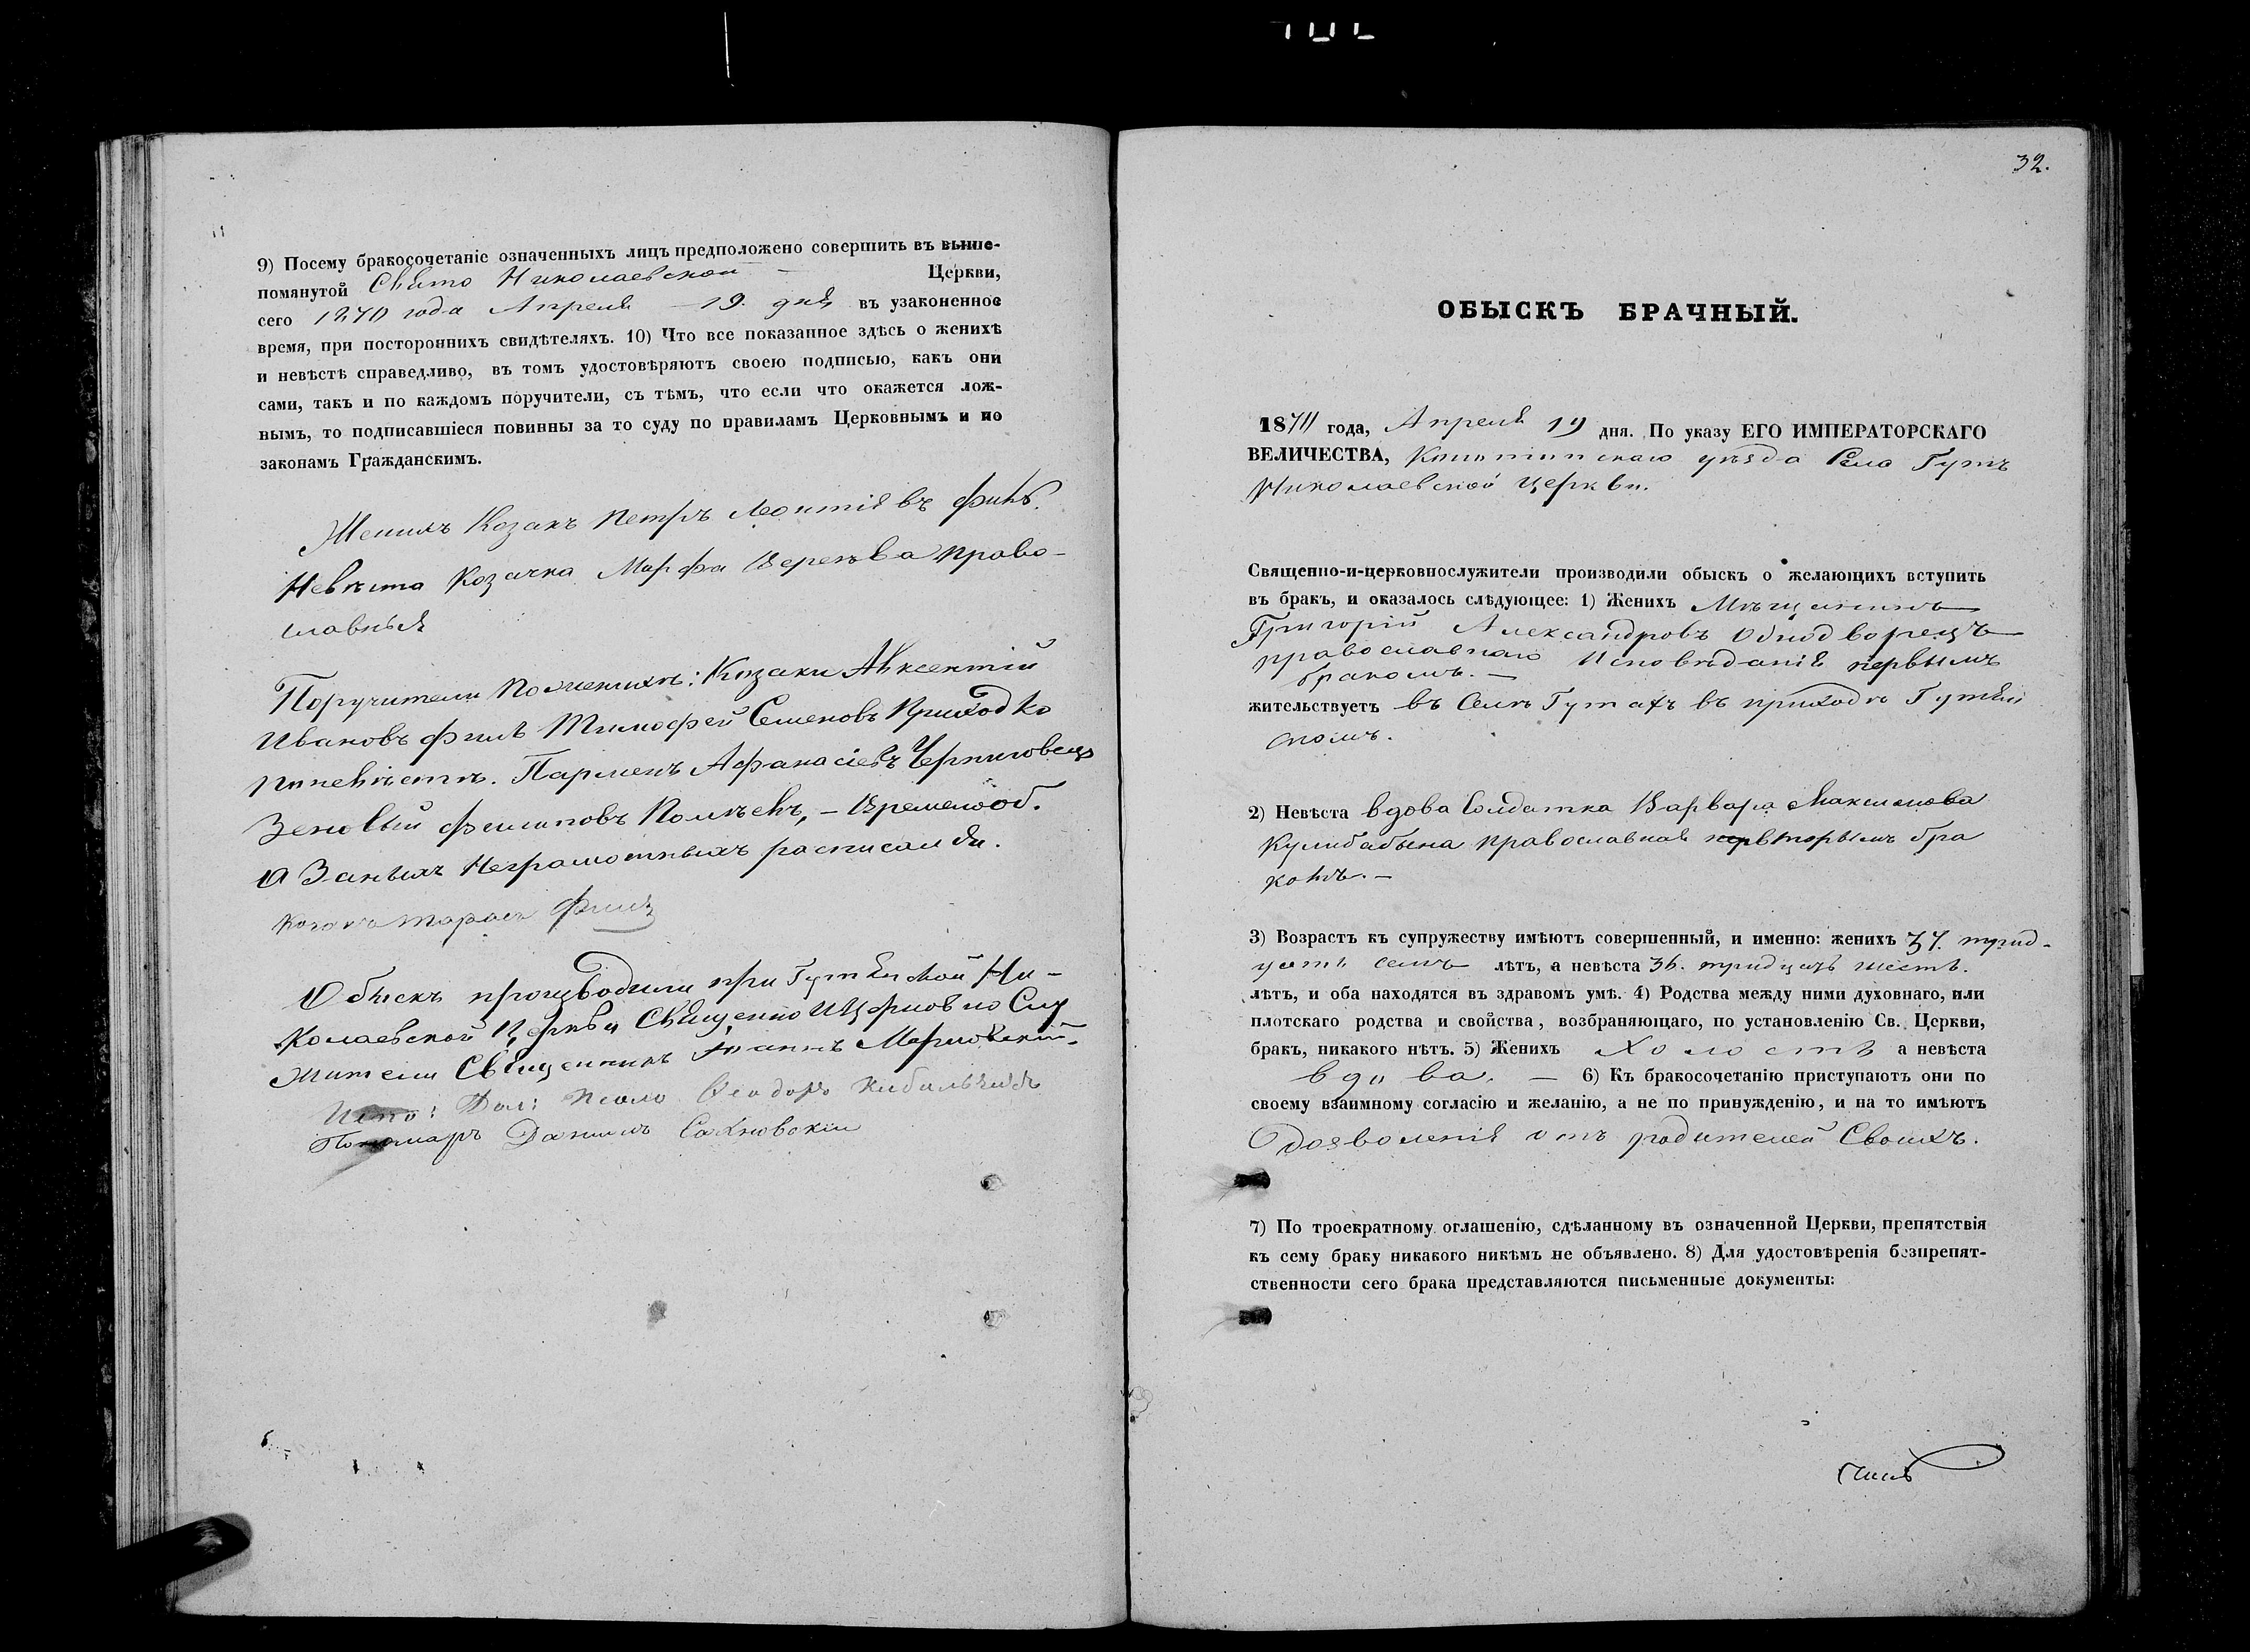 9) Посему бракосочетаніе означенныхъ лицъ предположено совершить въ выше-
помянутой Свято Николаевской Церкви,
сего 1870 года Апреля 19. дня въ узаконенное
время, при постороннихъ свидѣтеляхъ. 10) Что все показанное здѣсь о женихѣ
и невѣстѣ справедливо, въ томъ удостовѣряютъ своею подписью, какъ они
сами, такъ и по каждомъ поручители, съ тѣмъ, что если что окажется лож-
нымъ, то подписавшіеся повинны за то суду по правиламъ Церковнымъ и по
законамъ Гражданскимъ.
Женихъ Козакъ Петръ Леонтіевъ
Невѣста Козачка Марфа право-
славныя
Поручители По женихѣ: Козаки Авксентій
Ивановъ Филь Тимофей Семеновъ Приходко
По невѣстѣ. Парменъ Афанасіевъ Черниговецъ
Зеновій Филиповъ – Временооб.
а За нихъ Неграмотныхъ росписался.
Козакъ Тарасъ
Обыскъ производили при Ни-
колаевской Церкви Священно и Церковно Слу
жители Священникъ Іоаннъ
Дол: Псало Ѳеодоръ Кибальчичъ
Пономарь Даниилъ Сахновскій
32.
ОБЫСКЪ БРАЧНЫЙ.
1870 года, Апреля 19 дня. По указу ЕГО ИМПЕРАТОРСКАГО
ВЕЛИЧЕСТВА, Конотопскаго уѣзда Села Гутъ
Николаевской Церкви.
Священно-и-церковнослужители производили обыскъ о желающихъ вступить
въ бракъ, и оказалось слѣдующее: 1) Женихъ Мѣщанинъ
Григорій Александровъ Однодворецъ
православнаго Исповѣданія первымъ
бракомъ. —
жительствуетъ въ Селѣ Гутахъ въ приходѣ Гутян
скомъ.
2) Невѣста вдова Солдатка Варвара Максимова
Кулибабина православная вторымъ бра
комъ. —
3) Возрастъ къ супружеству имѣютъ совершенный, и именно: женихъ 37. трид-
цать семь лѣтъ, а невѣста 36. тридцать шесть.
лѣтъ, и оба находятся въ здравомъ умѣ. 4) Родства между ними духовнаго, или
плотскаго родства и свойства, возбраняющаго, по установленію Св. Церкви,
бракъ, никакого нѣтъ. 5) Женихъ Холостъ а невѣста
вдова. — 6) Къ бракосочетанію приступаютъ они по
своему взаимному согласію и желанію, а не по принужденію, и на то имѣютъ
дозволенія отъ родителей Своихъ.
7) По троекратному оглашенію, сдѣланному въ означенной Церкви, препятствія
къ сему браку никакого никѣмъ не объявлено. 8) Для удостовѣренія безпрепят-
ственности сего брака представляются письменные документы: